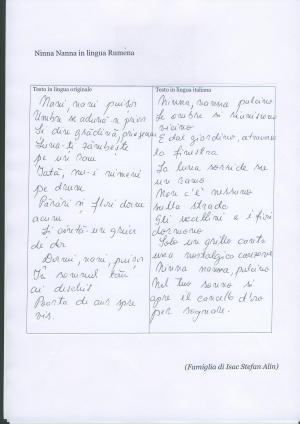 Ninna Nanna in lingua Rumena
Testo in lingua originale
Nani, nani puișor
Umbre se adună-n
Și din grădină, prin geam
Luna-ți zâmbește
pe un ram
Iată, nu-i nimeni
pe drum
Păsări și flori dorm
acum
Și cântă un greier
de dor
Dormi, nani, puișor
În somnul tău
ai deschis
Poarta de aur spre
vis.
Testo in lingua italiana
Ninna, nanna pulcino
Le ombre si riuniscono
vicino
E dal giardino, attraverso
la finestra
La luna sorride su
un ramo
Non c'è nessuno
sulla strada
Gli uccellini e i fiori
dormono
Solo un grillo canta
una nostalgica canzone
Ninna nanna, pulcino
Nel tuo sonno si
apre il cancello d'oro
per sognare.
(Famiglia di Isac Stefan Alin)